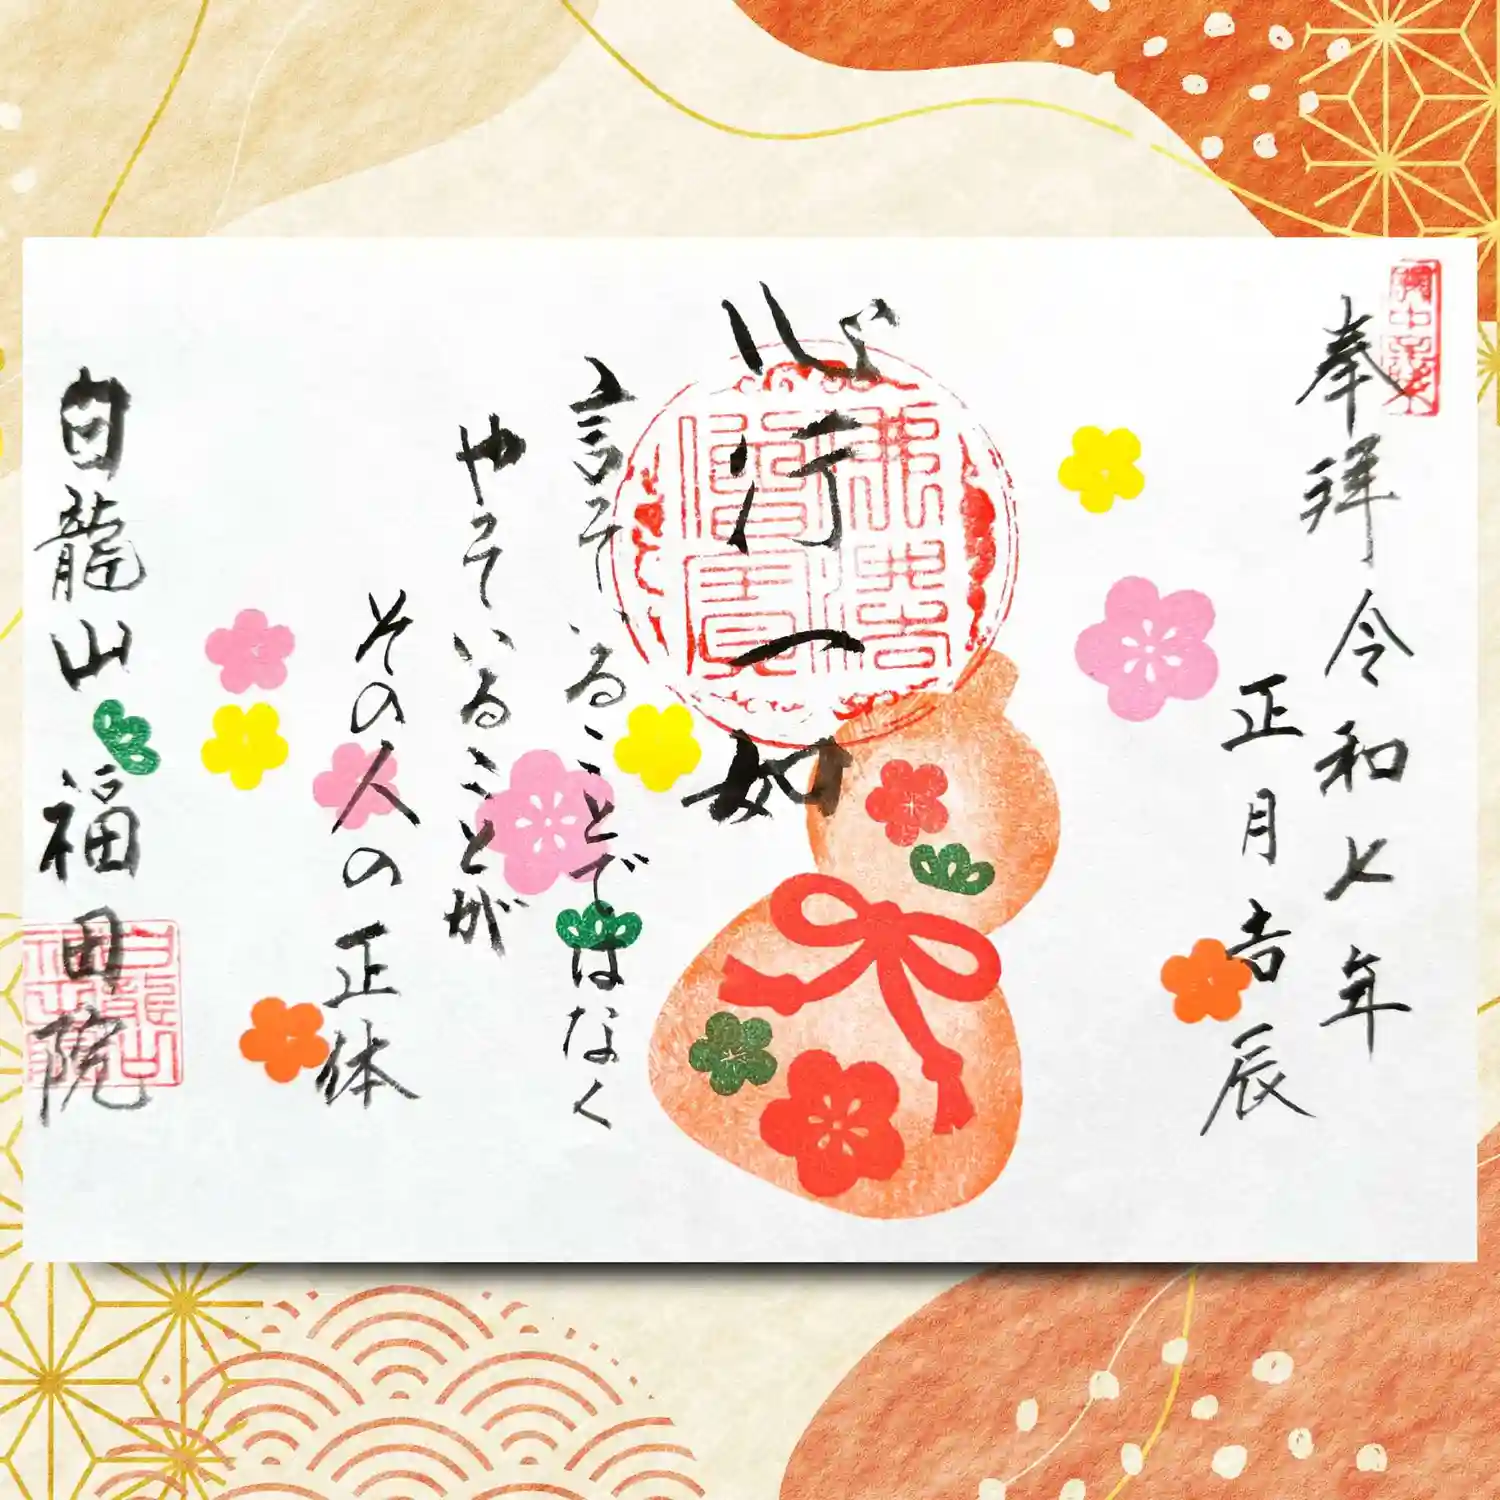 奉拝 令和七年
正月吉辰
心行一如
言っていることではなく
やっていることが
その人の正体
白龍山 福田院
佛法僧寶